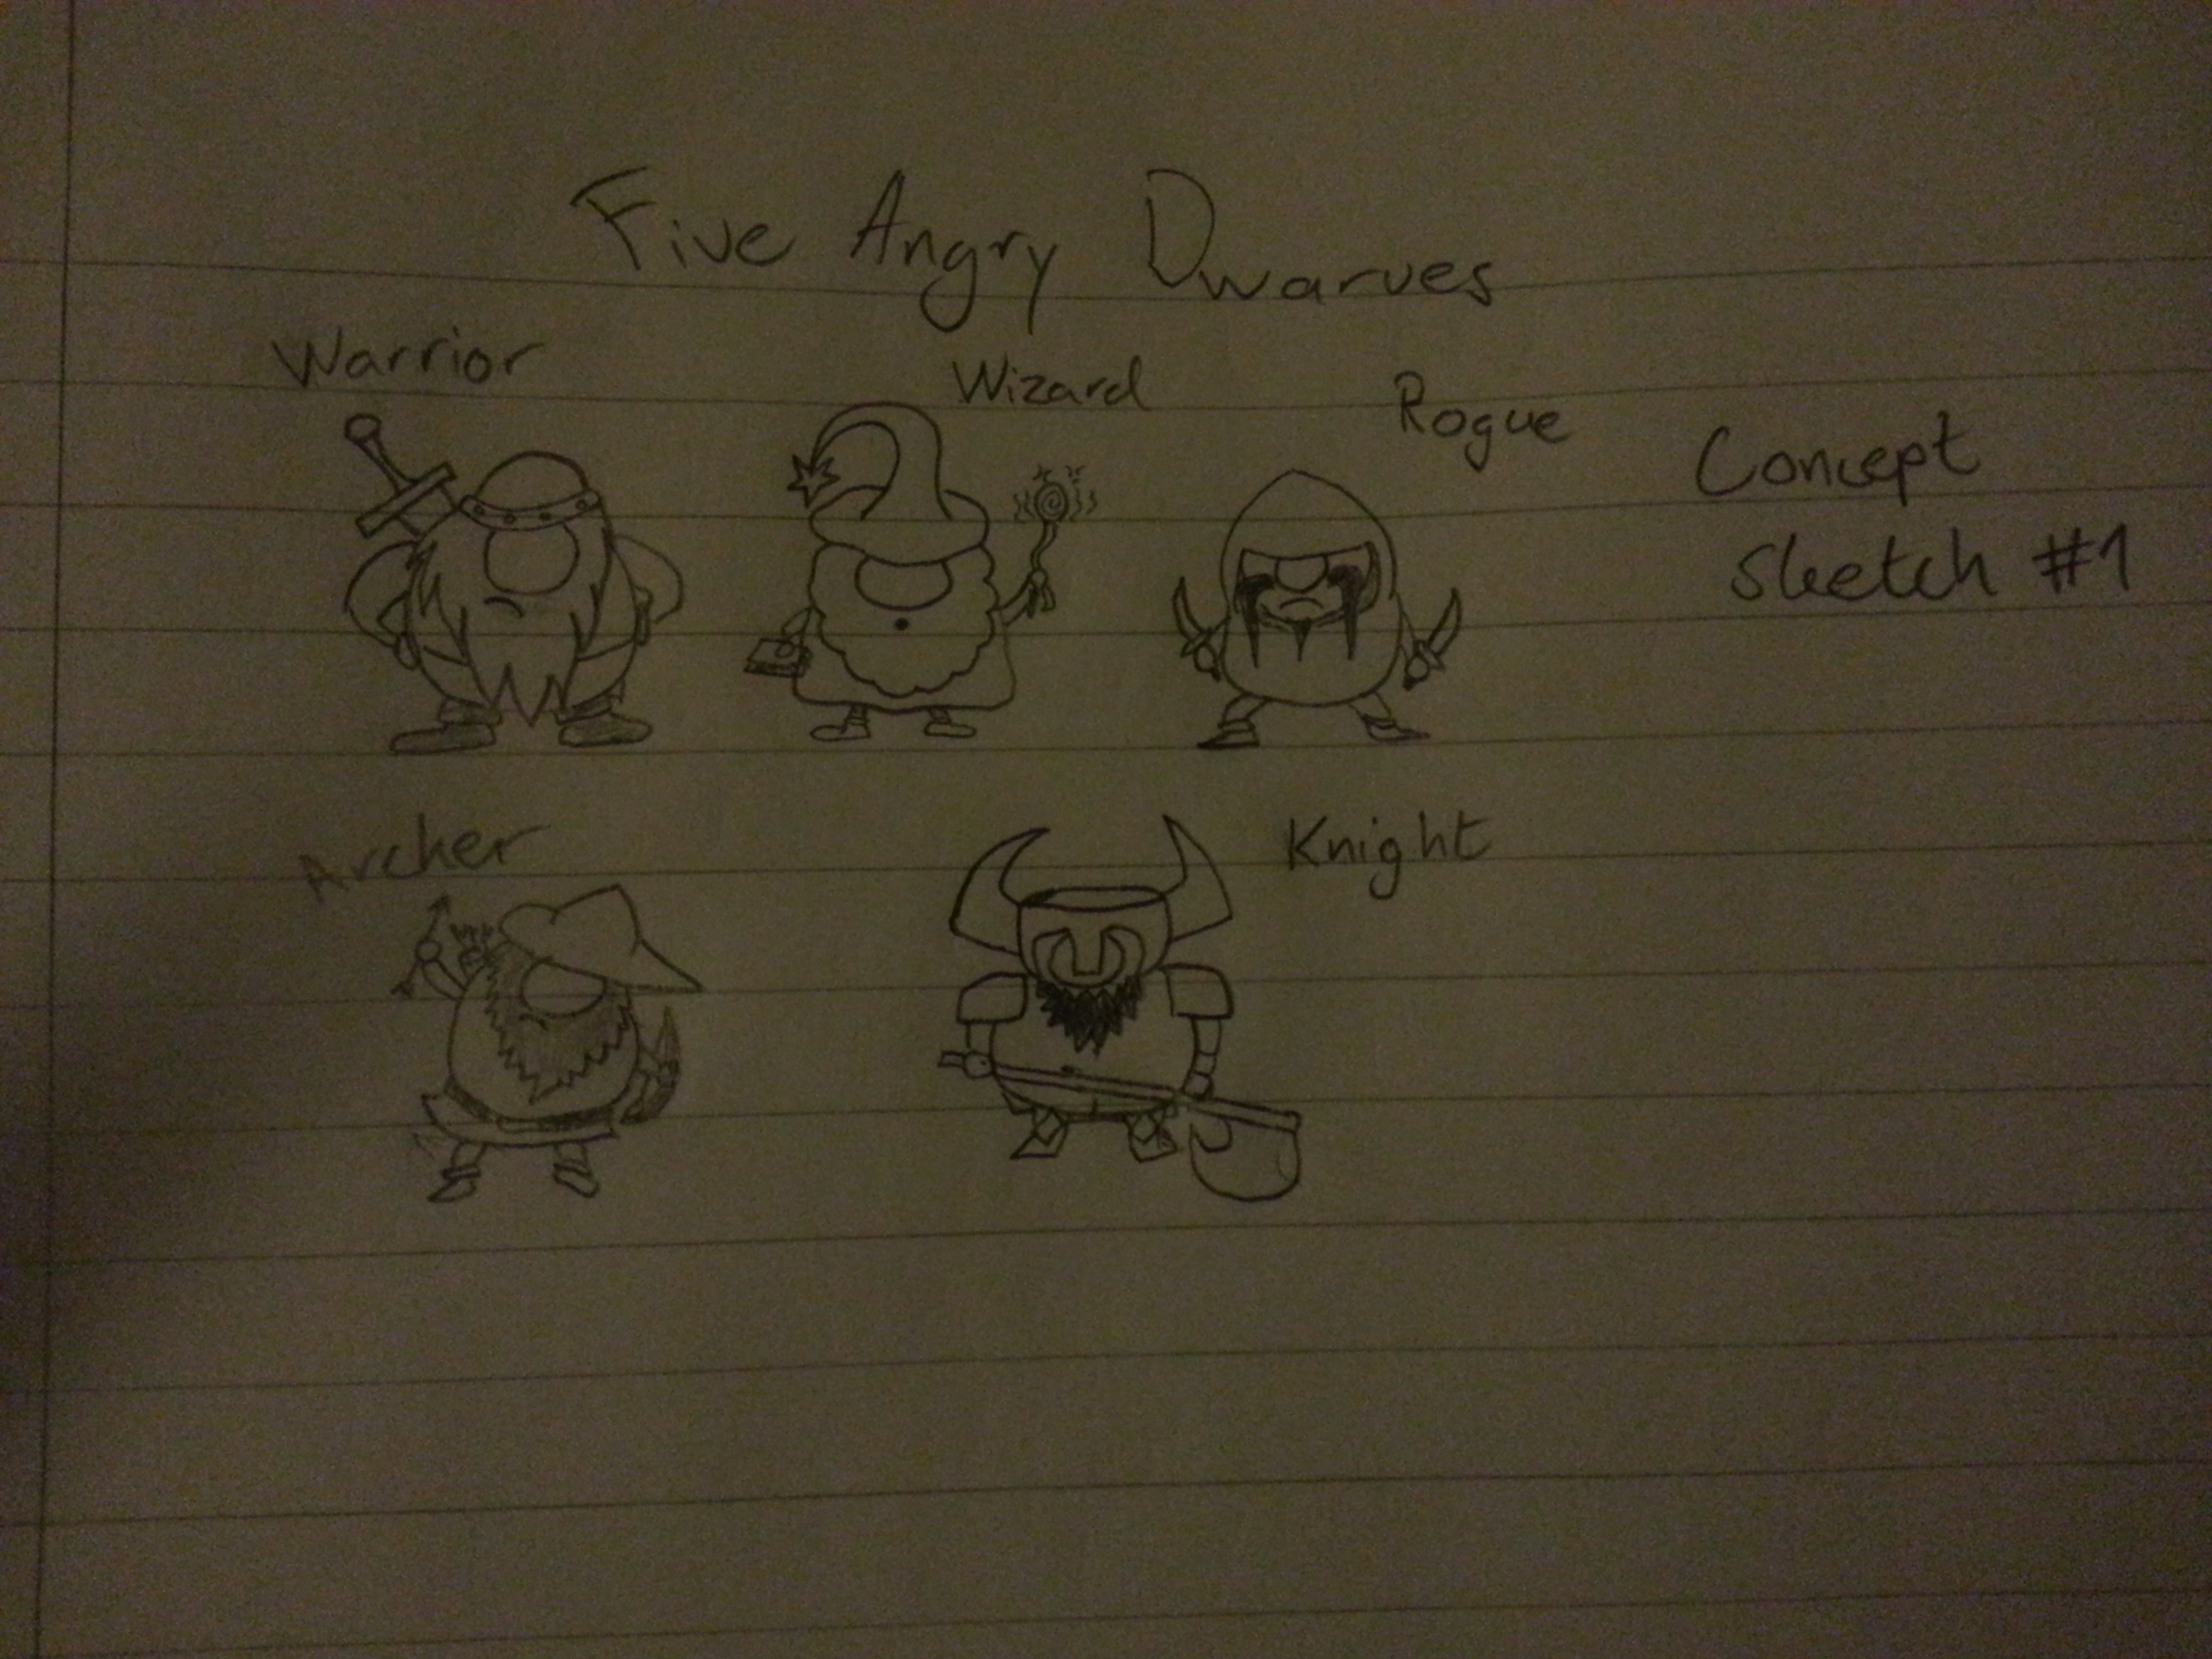 Five Angry Dwarves
Warrior
Wizard
Rogue
Concept
Sketch #1
Archer
Knight